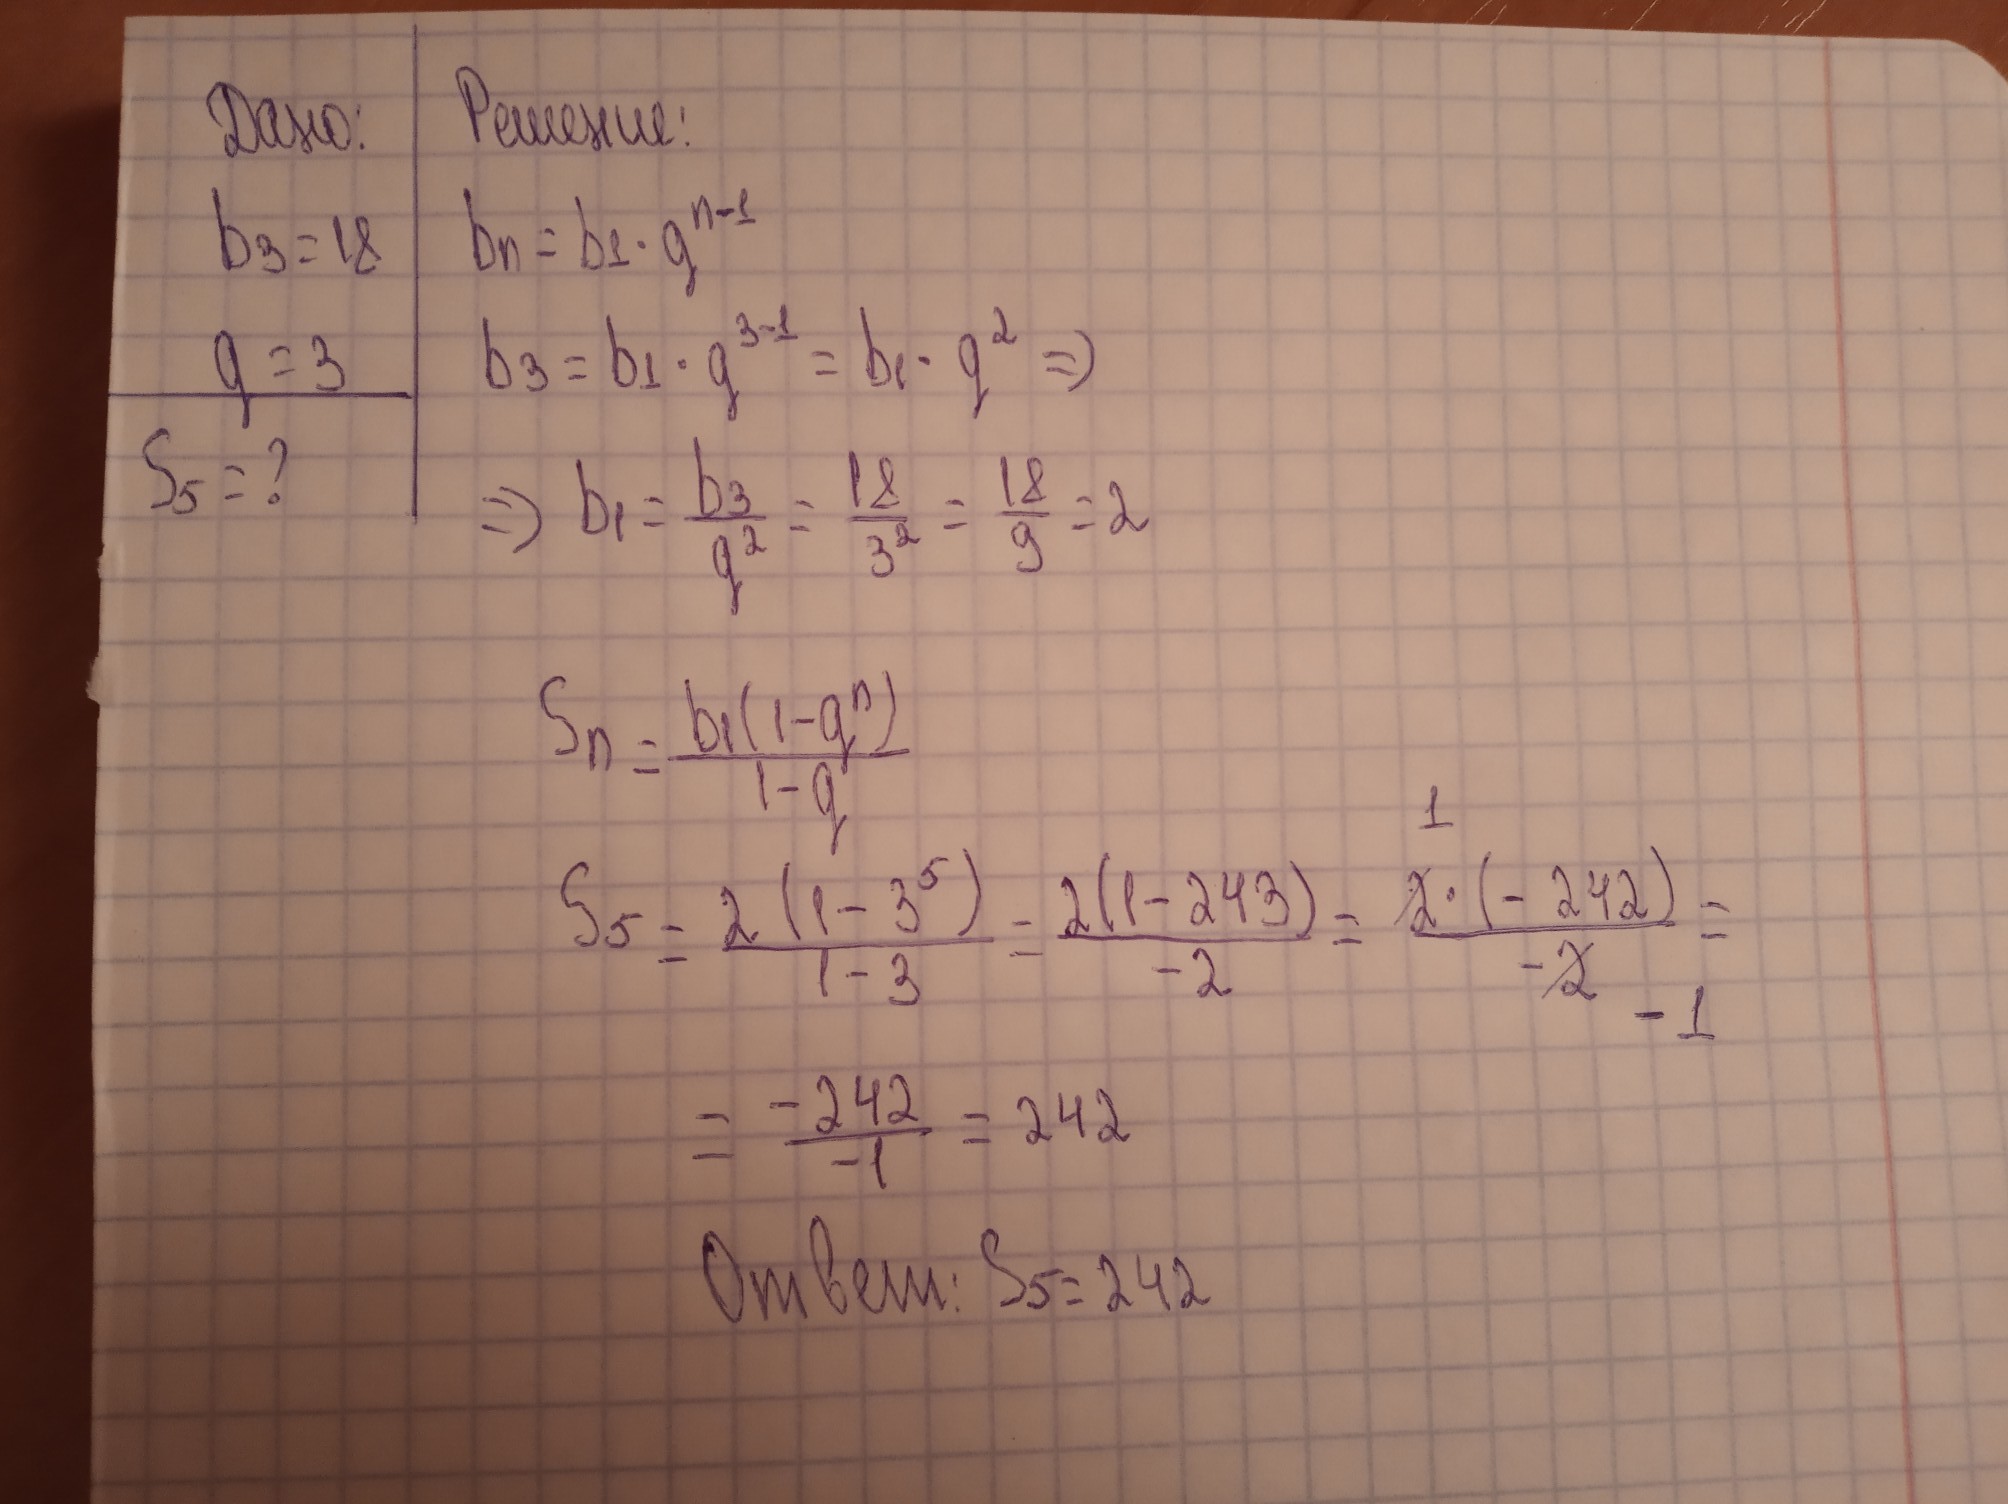 Дано:
b₃ = 18
q = 3
S₅ = ?
Решение:
bₙ = b₁ · qⁿ⁻¹
b₃ = b₁ · q³⁻¹ = b₁ · q² ⇒
⇒ b₁ = b₃/q² = 18/3² = 18/9 = 2
Sₙ = b₁(1-qⁿ)/1-q
S₅ = 2(1-3⁵)/1-3 = 2(1-243)/-2 = 2·(-242)/-2 =
1
-1
= -242/-1 = 242
Ответ: S₅ = 242